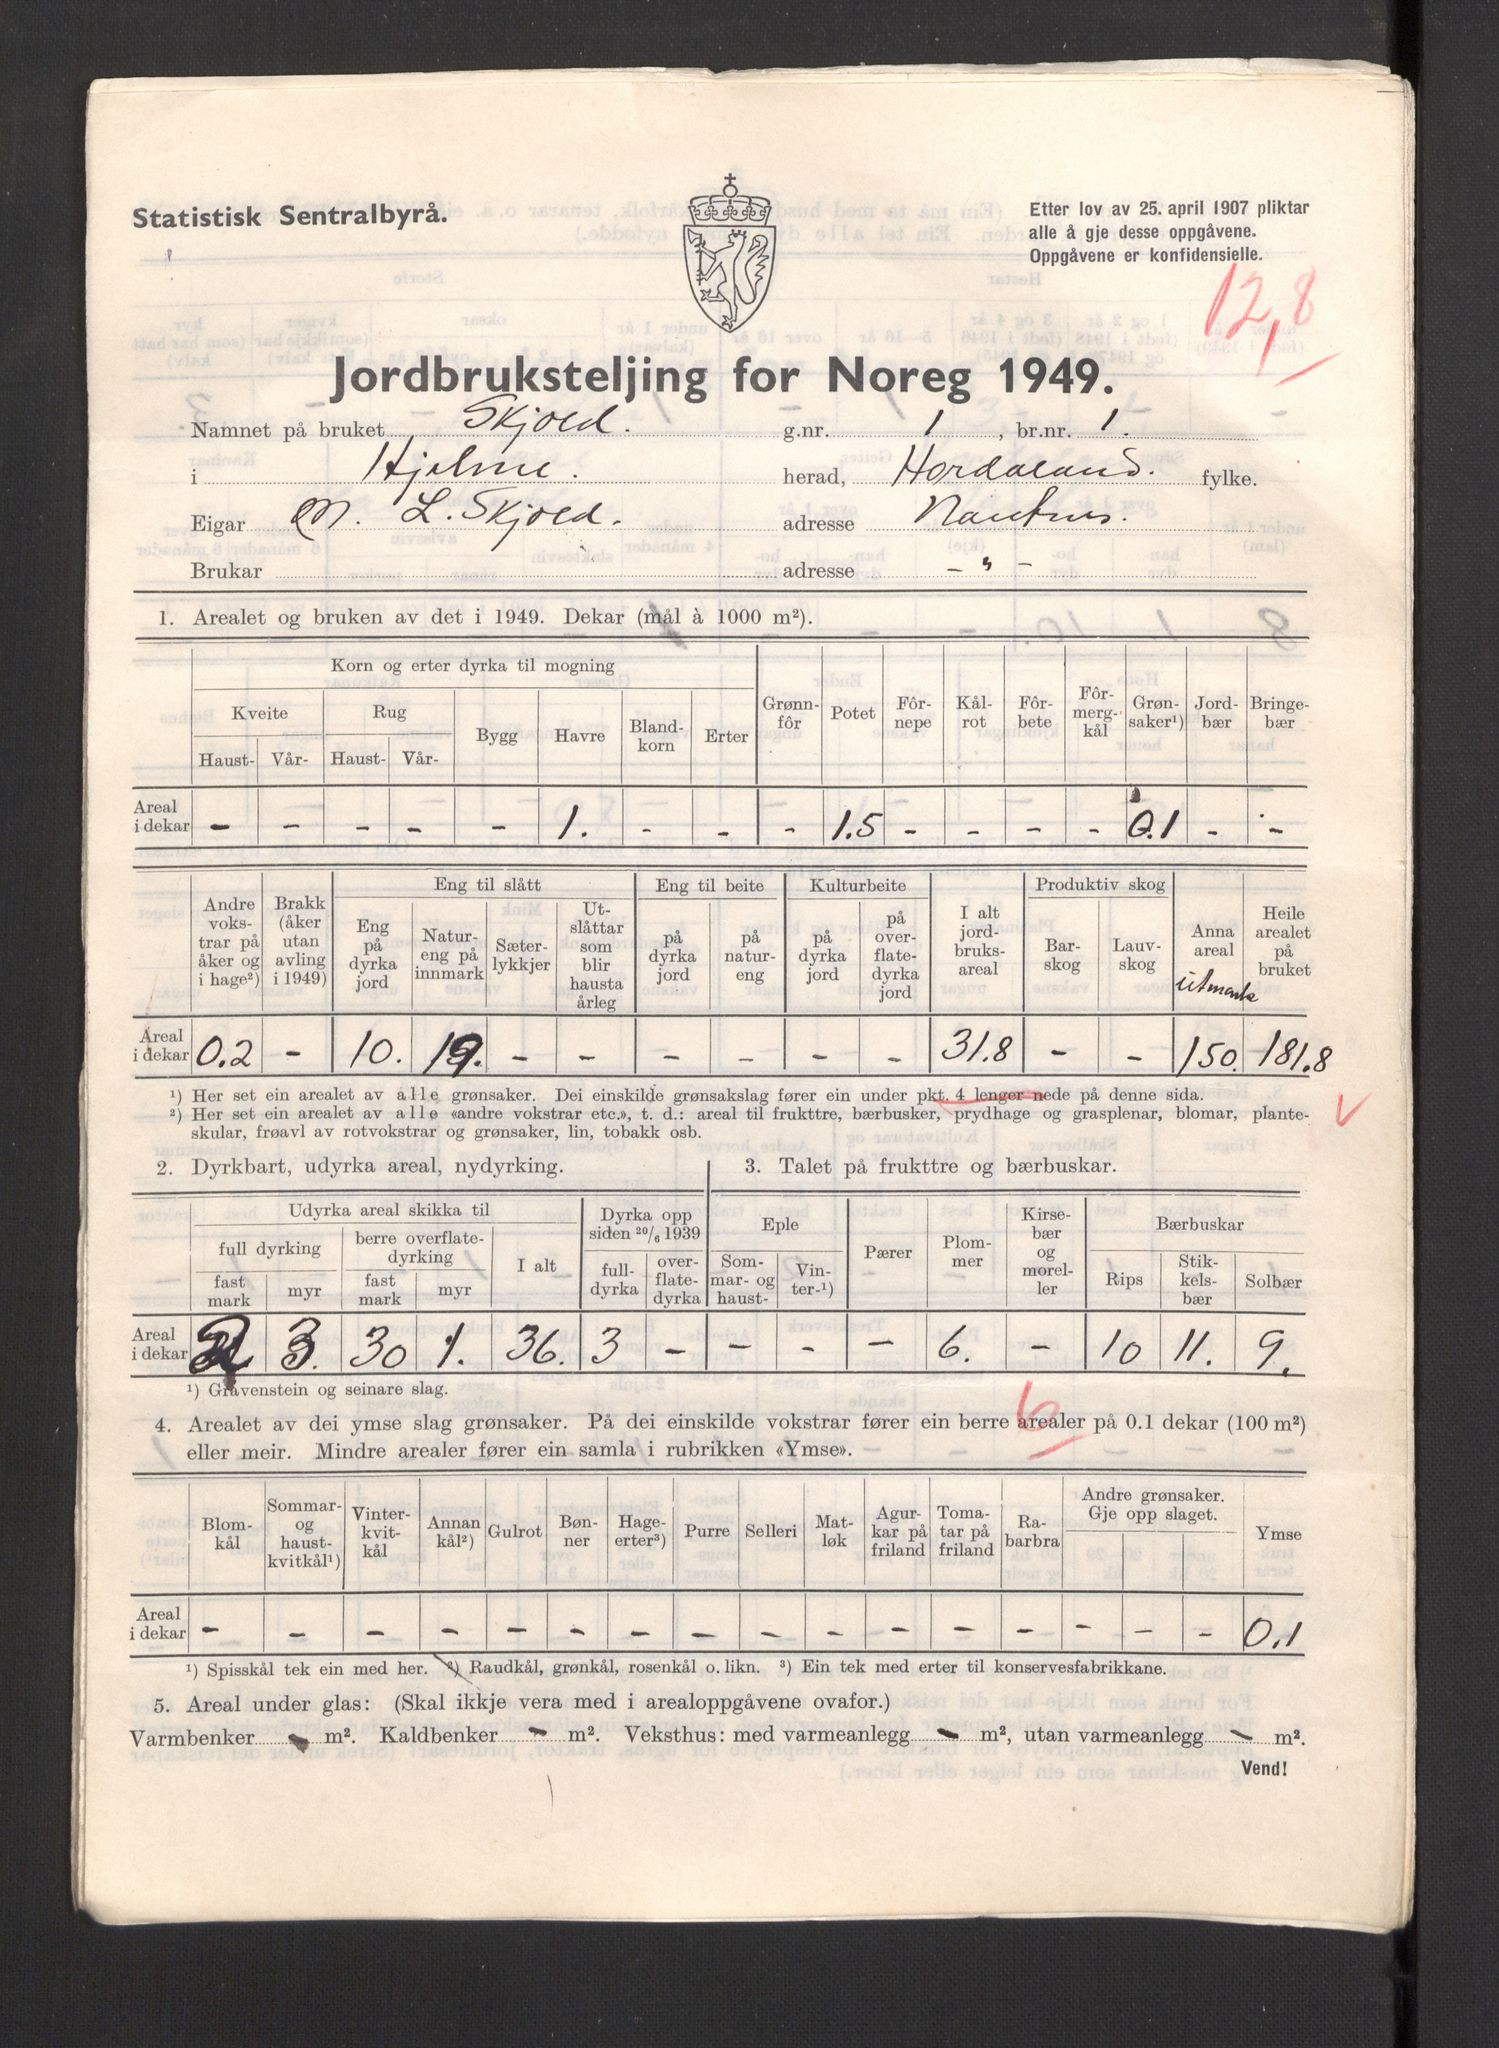 Statistisk Sentralbyrå.
Etter lov av 25. april 1907 pliktar
alle å gje desse oppgåvene.
Oppgåvene er konfidensielle.
12,8
Jordbruksteljing for Noreg 1949.
Namnet på bruket Skjold. g.nr. 1, br.nr. 1.
i Hjelme. herad, Hordaland. fylke.
Eigar M. L. Skjold. adresse
Brukar adresse – " –
1. Arealet og bruken av det i 1949. Dekar (mål à 1000 m²).
Korn og erter dyrka til mogning
Kveite Rug Bygg Havre Bland-korn Erter Grønn-fôr Potet Fôr-nepe Kål-rot Fôr-bete Fôr-mergkål Grøn-saker¹) Jord-bær Bringe-bær
Haust- Vår- Haust- Vår-
Areal i dekar – – – – – 1. – – – 1.5 – – – – 0.1 – –
Andre vokstrar på åker og i hage²) Brakk (åker utan avling i 1949) Eng til slått Eng til beite Kulturbeite I alt jordbruksareal Produktiv skog Anna areal utmark Heile arealet på bruket
Eng på dyrka jord Natureng på innmark Sæterlykkjer Utslåttar som blir hausta årleg på dyrka jord på natureng på dyrka jord på overflatedyrka jord Barskog Lauvskog
Areal i dekar 0.2 – 10. 19. – – – – – – 31.8 – – 150. 181.8
¹) Her set ein arealet av alle grønsaker. Dei einskilde grønsakslag fører ein under pkt. 4 lenger nede på denne sida.
²) Her set ein arealet av alle «andre vokstrar etc.», t. d.: areal til frukttre, bærbusker, prydhage og grasplenar, blomar, plante-
skular, frøavl av rotvokstrar og grønsaker, lin, tobakk osb.
2. Dyrkbart, udyrka areal, nydyrking.
3. Talet på frukttre og bærbuskar.
Udyrka areal skikka til Dyrka opp siden 20/6 1939 Eple Pærer Plommer Kirsebær og moreller Bærbuskar
full dyrking berre overflatedyrking I alt fulldyrka overflatedyrka Sommar- og haust- Vinter-¹) Rips Stikkelsbær Solbær
fast mark myr fast mark myr
Areal i dekar 2 3. 30 1. 36. 3 – – – – 6. – 10 11. 9.
¹) Gravenstein og seinare slag.
6
4. Arealet av dei ymse slag grønsaker. På dei einskilde vokstrar fører ein berre arealer på 0.1 dekar (100 m²)
eller meir. Mindre arealer fører ein samla i rubrikken «Ymse».
Blomkål Sommar- og haustkvitkål¹) Vinterkvitkål Annan kål²) Gulrot Bønner Hageerter³) Purre Selleri Matløk Agurkar på friland Tomatar på friland Rabarbra Andre grønsaker. Gje opp slaget. Ymse
Areal i dekar – – – – – – – – – – – – – – – – 0.1
¹) Spisskål tek ein med her. ²) Raudkål, grønkål, rosenkål o. likn. ³) Ein tek med erter til konservesfabrikkane.
5. Areal under glas: (Skal ikkje vera med i arealoppgåvene ovafor.)
Varmbenker – m². Kaldbenker – m². Veksthus: med varmeanlegg – m², utan varmeanlegg – m².
Vend!